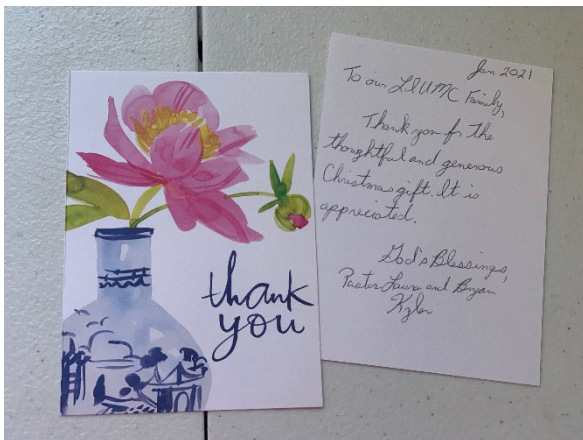 thank
you
Jan. 2021
To our LIUMC Family,
Thank you for the
thoughtful and generous
Christmas gift. It is
appreciated.
God's Blessings,
Pastor Laura and Bryan